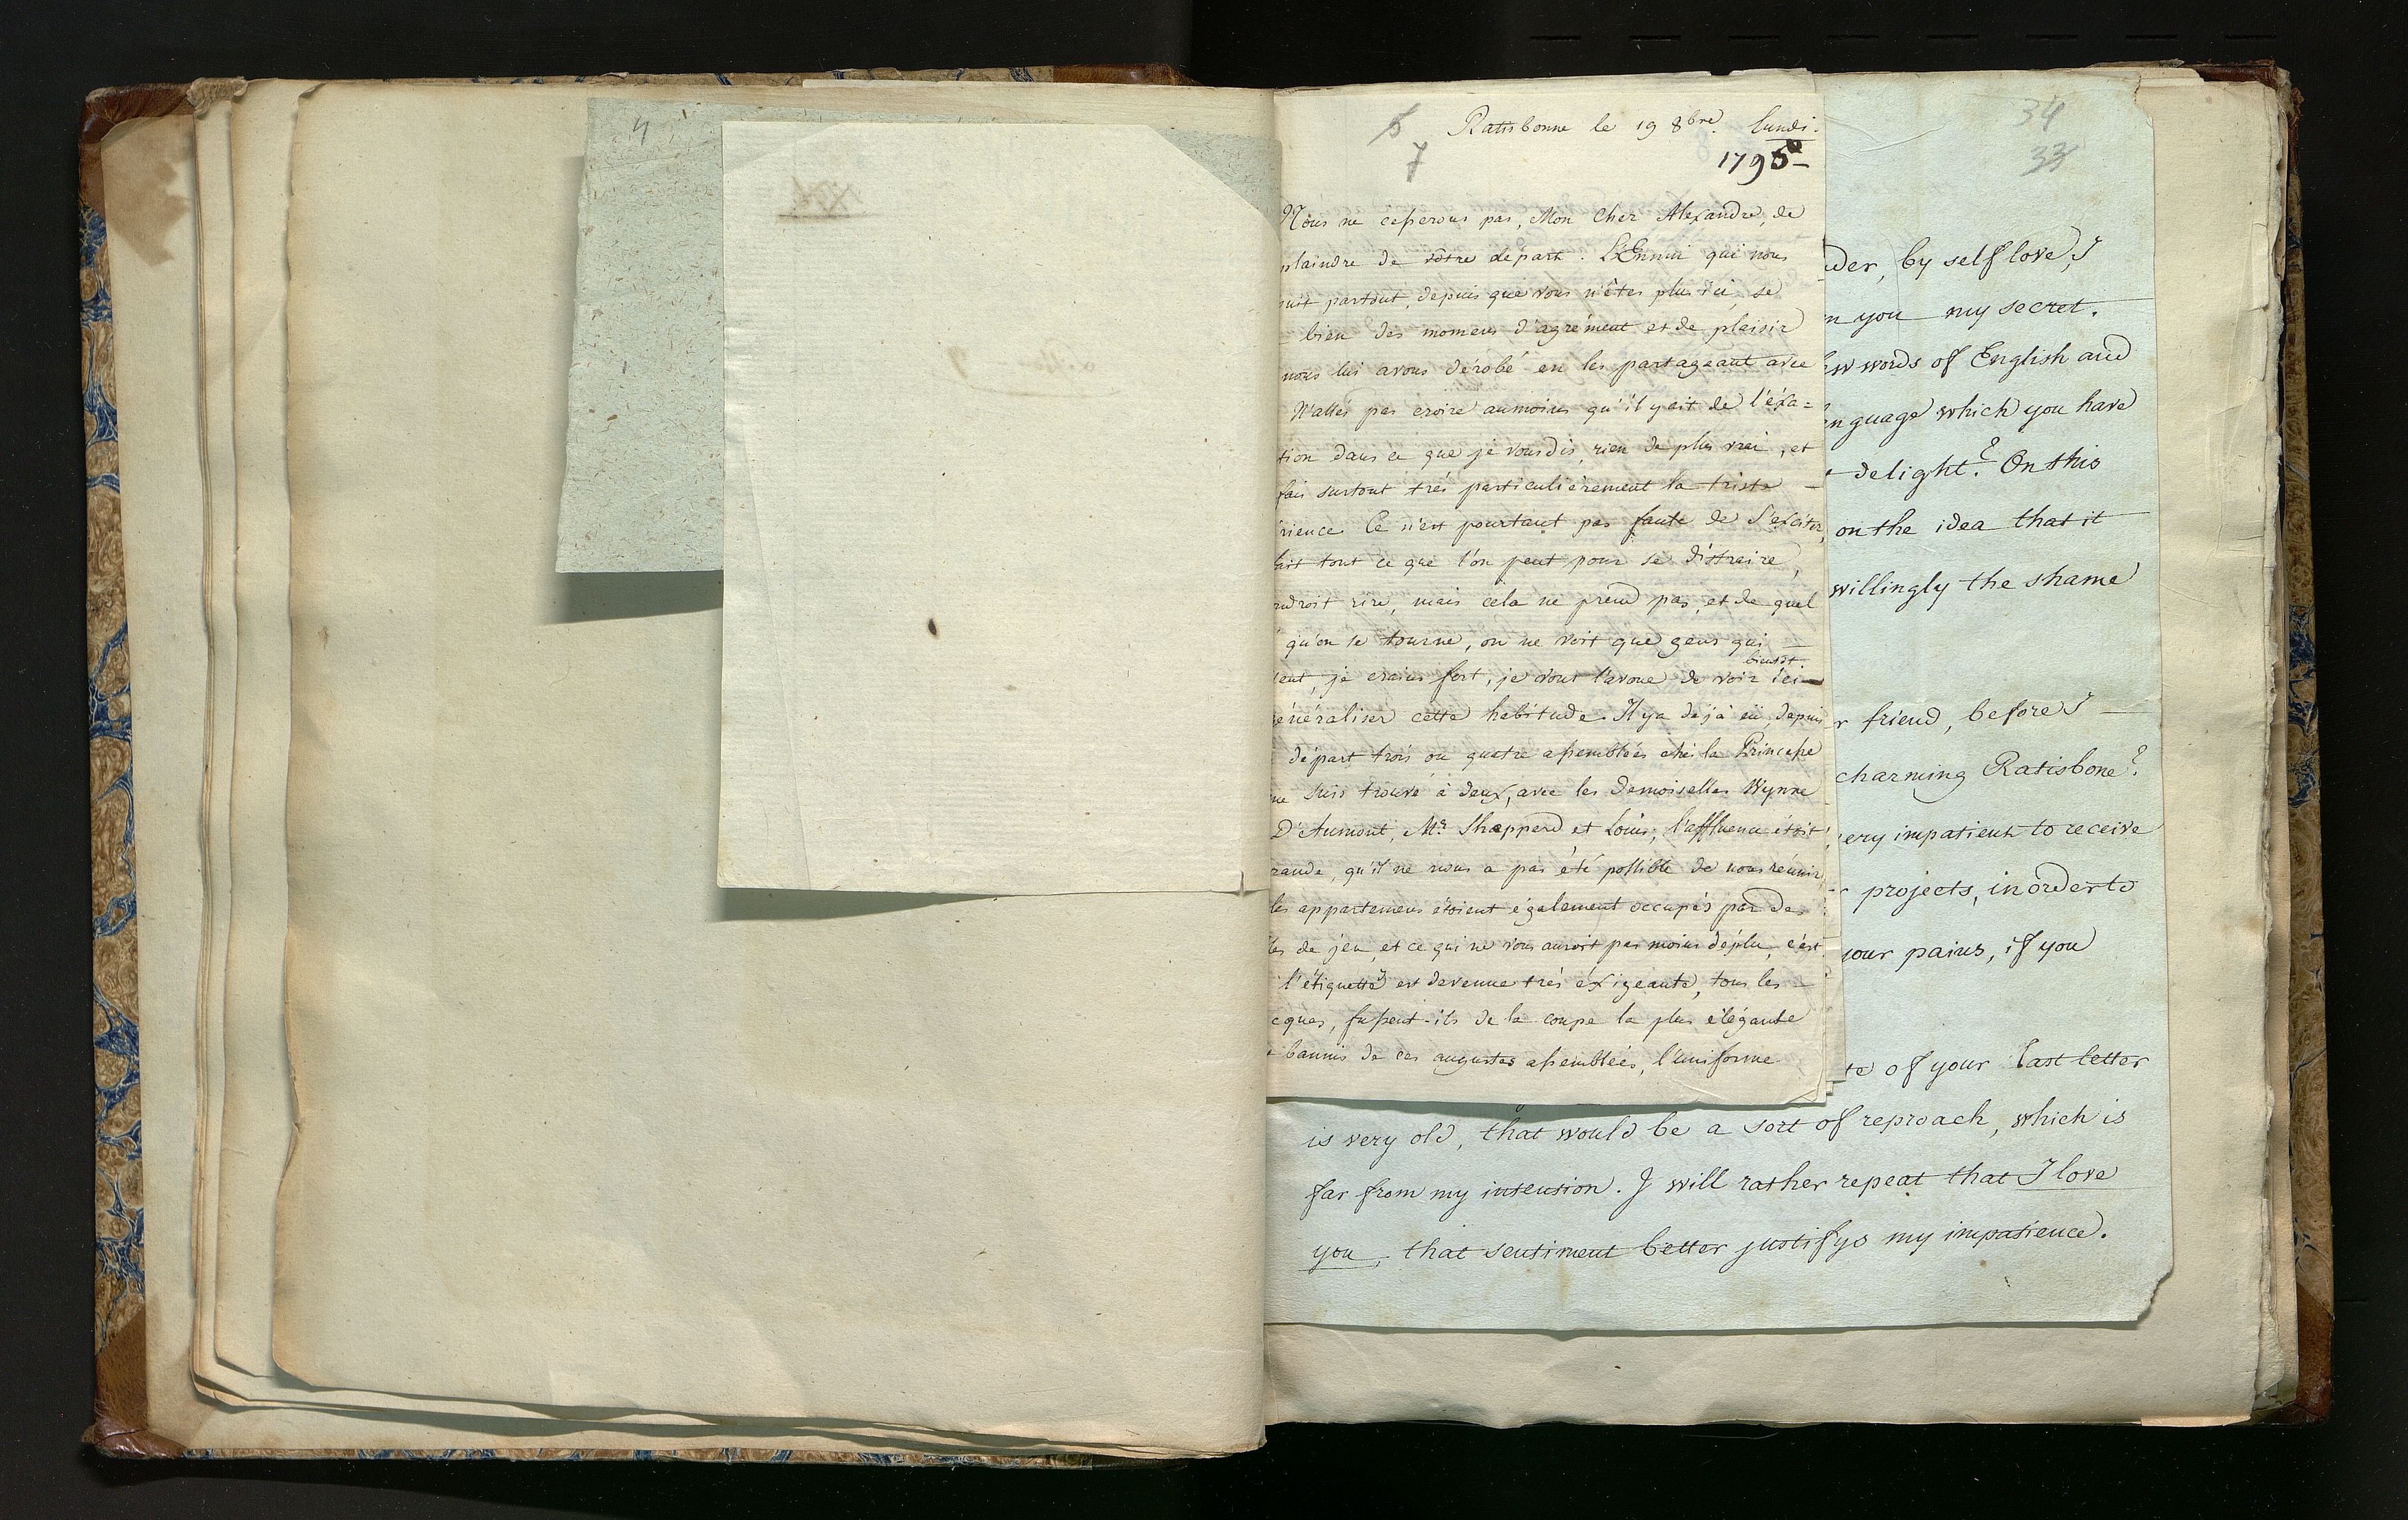 4
5
7
Ratisbonne le 19 8bre. lundi.
1795
Nous ne cesserons pas, Mon Cher Alexandre, de
plaindre de vôtre départ. L'Ennui qui nous
suit partout, depuis que vous n'êtes plus ici, se
bien des momens d'agrément et de plaisir
nous lui avons dérobé en les partageant avec
N'allés pas croire aumoins qu'il y ait de l'éxa=
tion dans ce que je vous dis, rien de plus vrai, et
fais surtout trés particulièrement la triste
rience. Ce n'est pourtant pas faute de s'exciter,
fait tout ce que l'on peut pour se distraire,
udroit rire, mais cela ne prend pas, et de quel
qu'on se tourne, on ne voit que gens qui
bientôt.
lent, je crains fort, je vous l'avoue de voir ici
énéraliser cette habitude. Il y a déjà eü, depuis
départ trois ou quatre assemblées chés la Princesse
me suis trouvé à deux, avec les demoiselles Wynne
D'Aumont, Mr. Shepperd et Louis, l'affluence étoit
rande, qu'il ne nous a pas été possible de nous réunir,
les appartemens étoient également occupés par des
les de jeu, et ce qui ne vous auroit pas moins déplu, c'est
l'étiquette est devenue trés éxigeante, tous les
cques, fussent-ils de la coupe la plus élégante
bannis de ces augustes assemblées, l'uniforme
34
33
der, by self love, I
n you my secret.
ew words of English and
nguage which you have
delight? On this
on the idea that it
willingly the shame
r friend, before I
charming Ratisbone?
ery impatient to receive
r projects, in order to
your pains, if you
te of your last letter
is very old, that would be a sort of reproach, which is
far from my intension. I will rather repeat that I love
you, that sentiment better justifys my impatience.